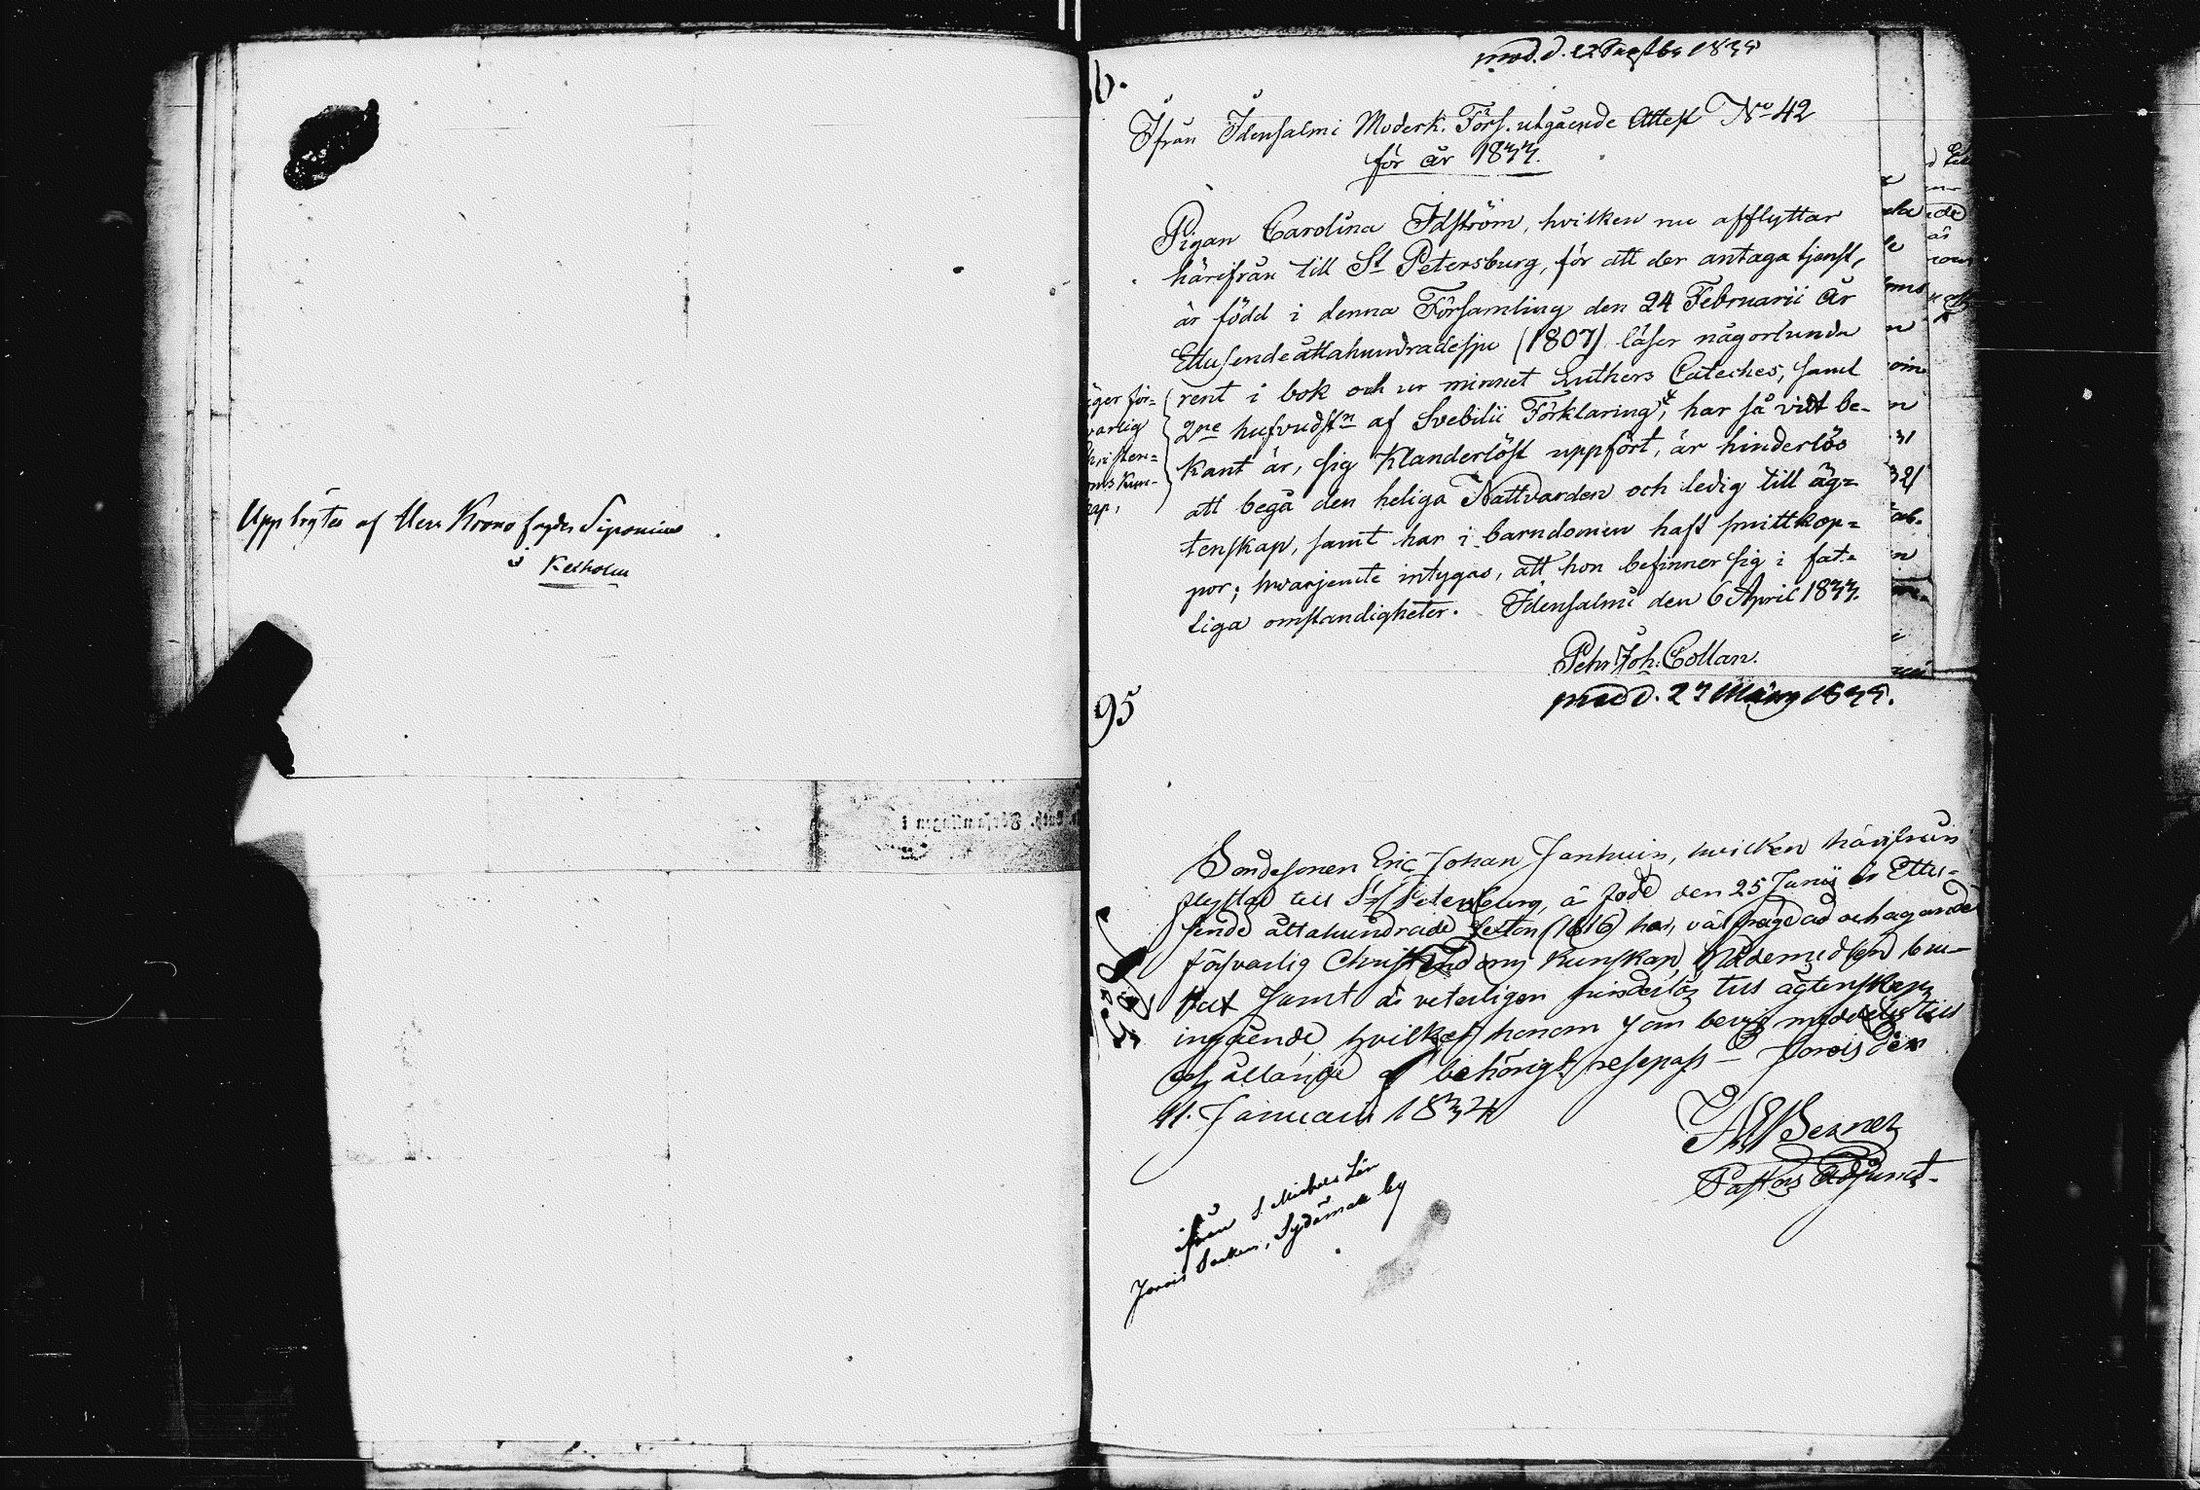 Uppbrytes af Herr Krono fogden Siponius
i Kexholm
Ifrån Idensalmi Moderk. Förs. utgående Attest No 42
för år 1833.
Pigan Carolina Idström, hvilken nu afflyttar
härifrån till St Petersburg, för att der antaga tjenst,
är född i denna Församling den 24 Februarii År
Ettusendeåttahundradesju (1807) läser någorlunda
rent i bok och ur minnet Luthers Cateches, samt
2ne hufvudstn af Svebilii Förklaring, har så vidt be-
kant är, sig klanderlöst uppfört, är hinderlös
att begå den heliga Nattvarden och ledig till äg-
tenskap, samt har i barndomen haft smittkop-
por; hvarjemte intygas, att hon befinner sig i fat-
tiga omständigheter. Idensalmi den 6 April 1833.
Pehr Joh. Collan.
äger för-
varlig
christen-
oms kun-
kap,
95
prod d. 27 Mars
Bondesonen Eric Johan Janhuin, hvilken härifrån
flyttar till St Petersburg, är född den 25 Junii år Ettu-
sende åttahundrade Sexton (1816) har,
försvarlig Christendoms kunskap, Nådemedlen bru-
kat samt är veterligen hinderlös till ägtenskaps
ingående hvilket honom som bevis meddelas till
erhållande af behörigt respass - Jorois den
11. Januari 1834
Pastors Adjunct.
ifrån S. Michels Län
Jorois Socken, Sydänmaa by